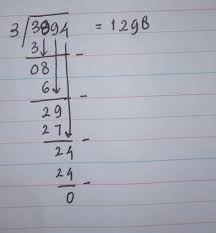 3 √3894 = 1298
3 -
08
6 -
29
27 -
24
24 -
0